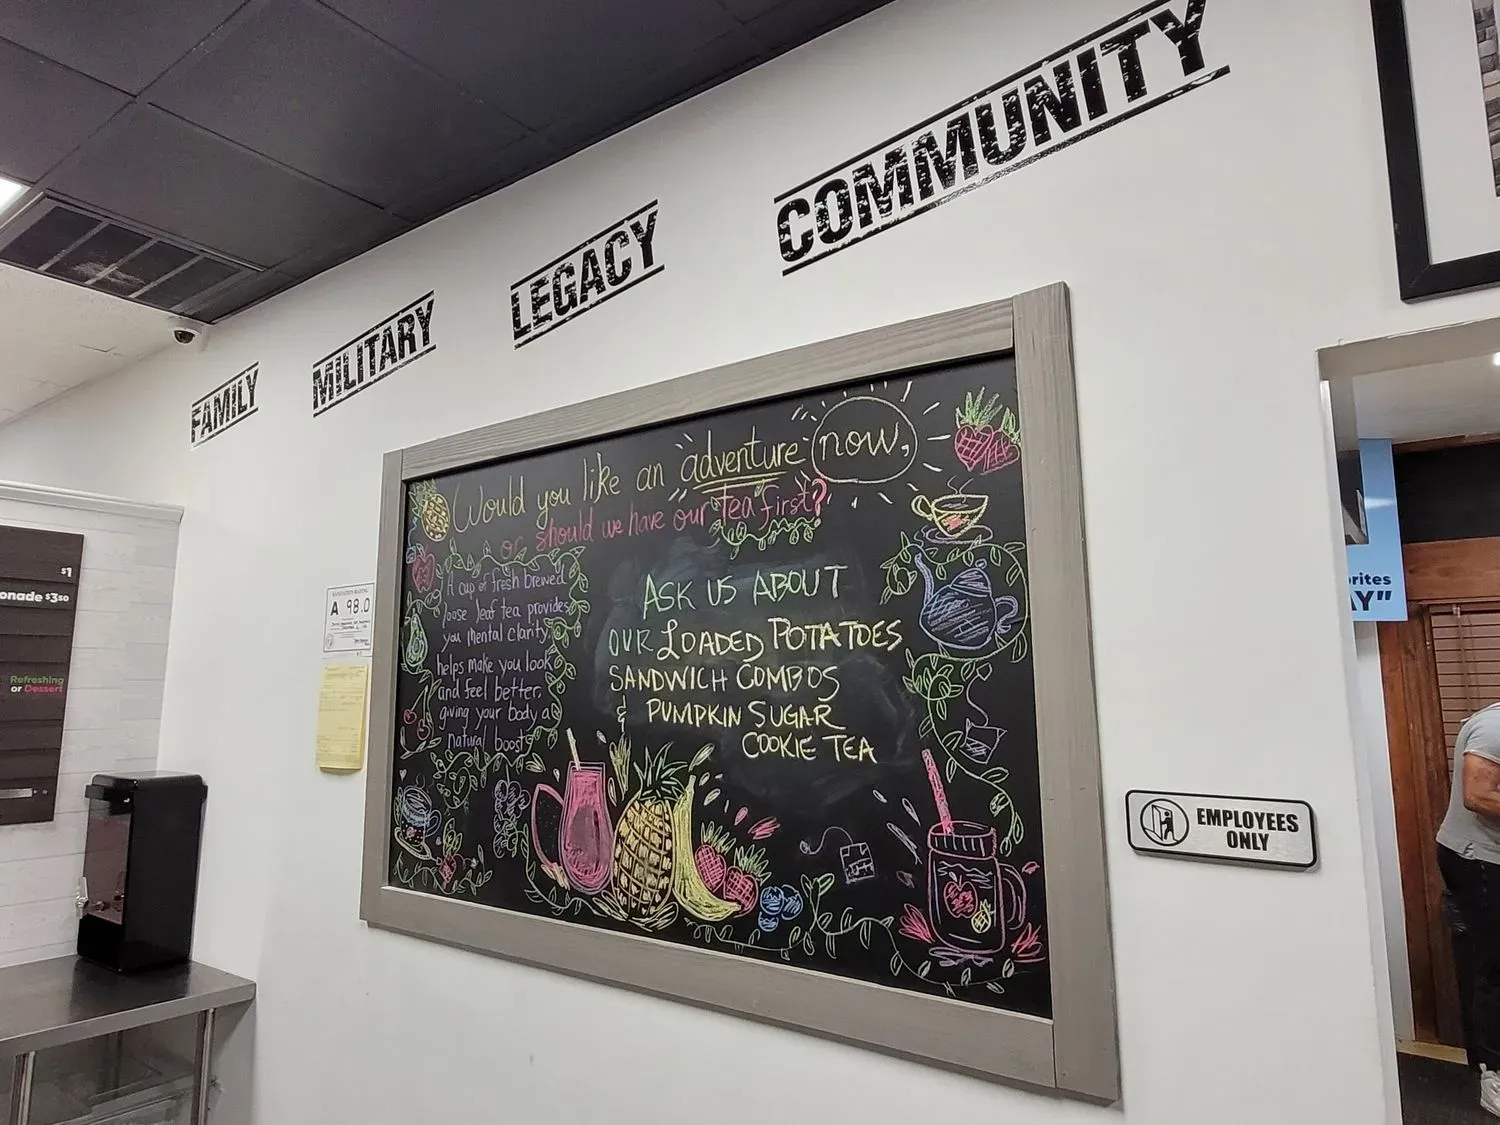 FAMILY
MILITARY
LEGACY
COMMUNITY
Would you like an adventure now,
or should we have our tea first?
A cup of fresh brewed
loose leaf tea provides
you mental clarity,
helps make you look
and feel better,
giving your body a
natural boost.
ASK US ABOUT
OUR LOADED POTATOES
SANDWICH COMBOS
& PUMPKIN SUGAR
COOKIE TEA
SANITATION RATING
A 98.0
$1
onade $3.50
Refreshing
or Dessert
EMPLOYEES
ONLY
orites
AY"